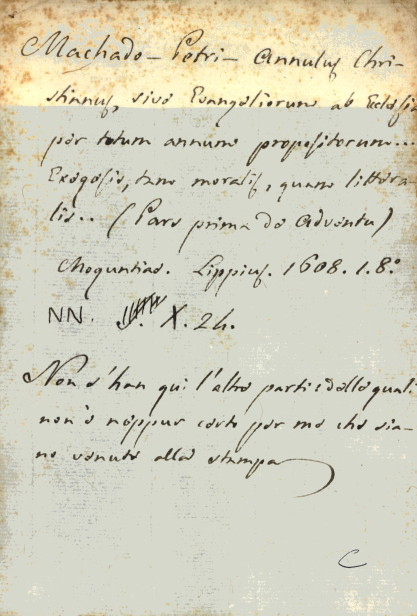 Machado - Petri - Annulus Chri-
stianus, sive Evangeliorum ab Ecclesia
per totum annum propositorum...
Exegesis, tum moralis, quam littera-
lis.. (Pars prima de Adventu)
Moguntiae. Lippius. 1608. 1. 8.º
NN. X. 24.
Non s'han qui l'altre parti delle quali
non è neppur certo per me che sia-
no venute alla stampa
C